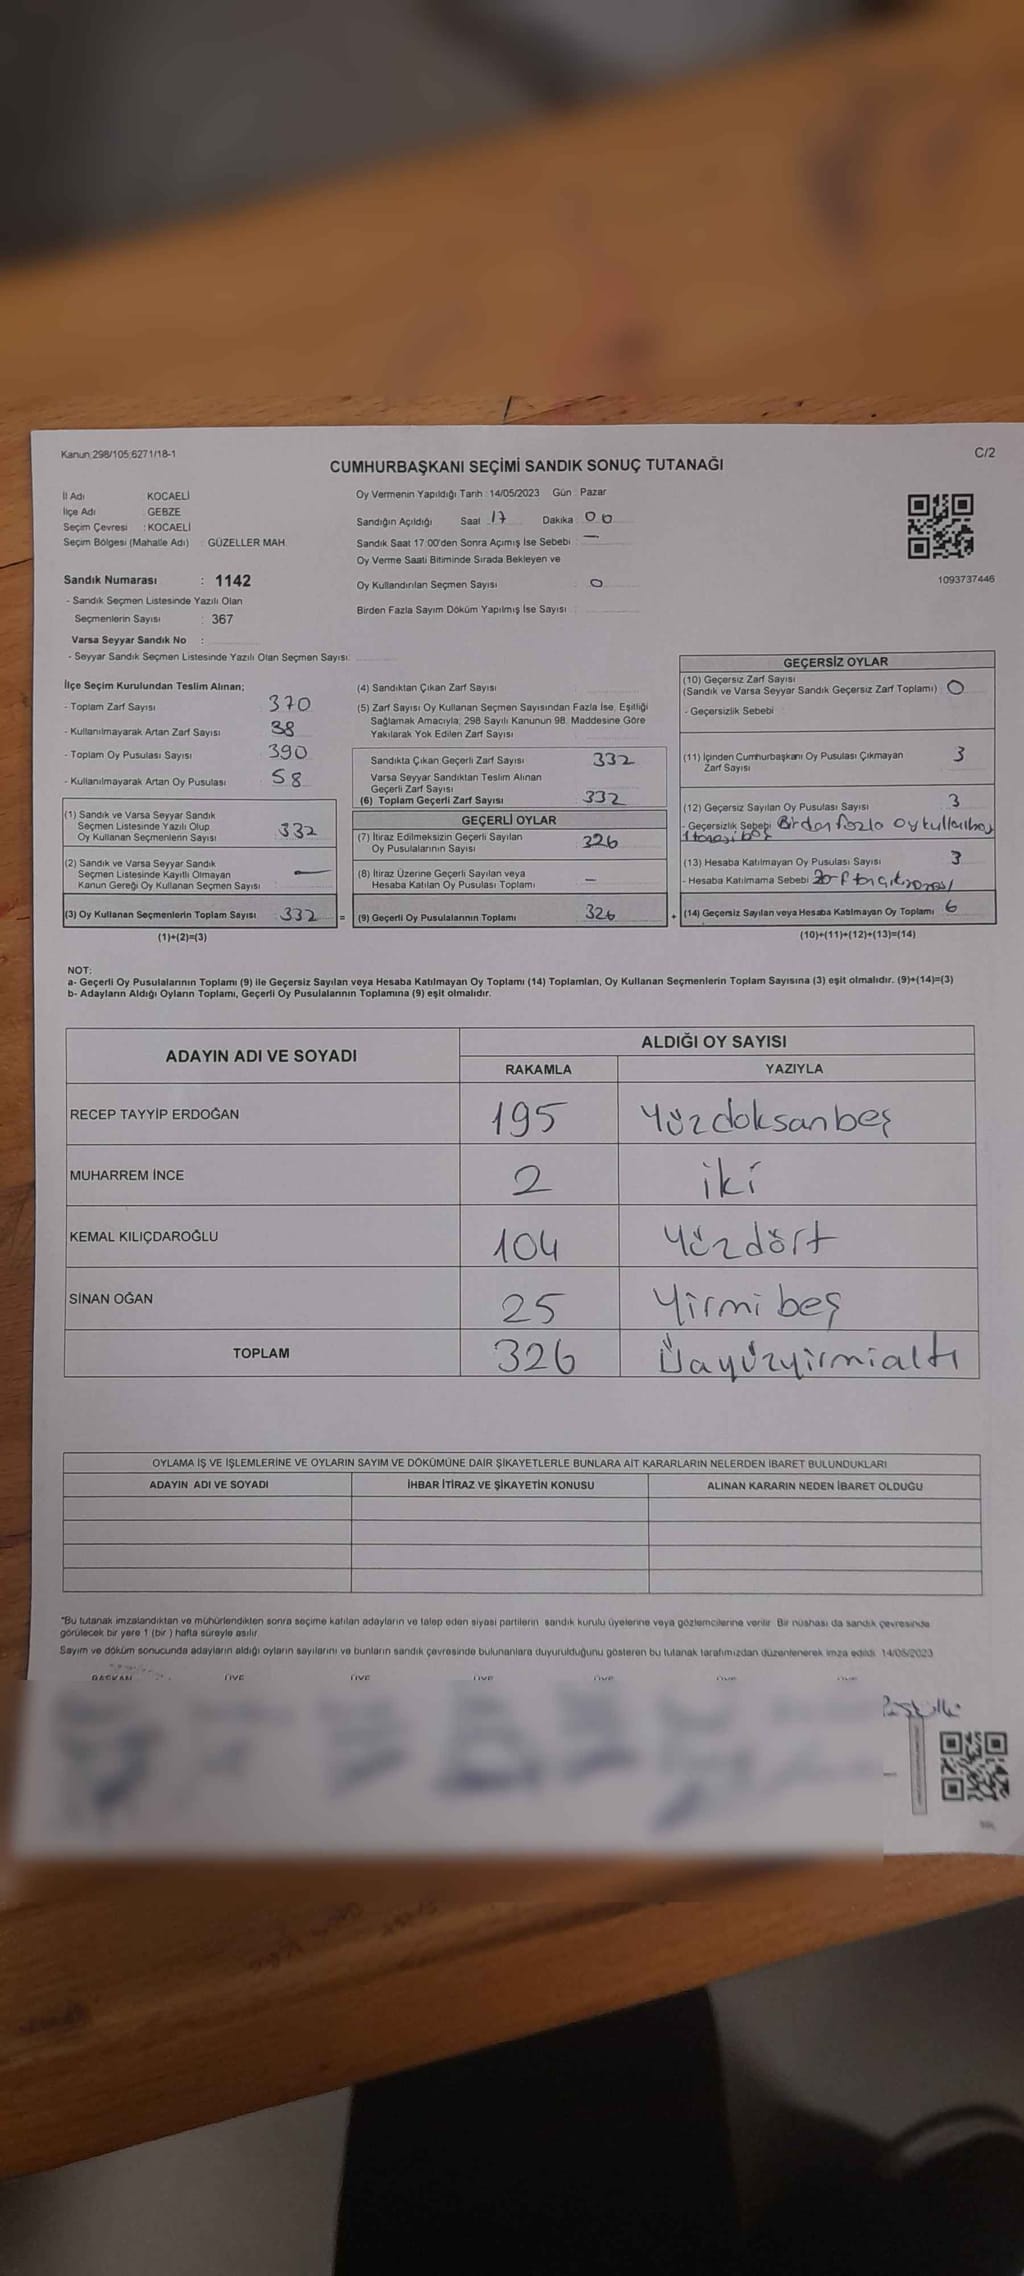 Kanun 298/105 6271/18-1
C/2
CUMHURBAŞKANI SEÇİMİ SANDIK SONUÇ TUTANAĞI
İl Adı KOCAELİ
İlçe Adı : GEBZE
Seçim Çevresi : KOCAELİ
Seçim Bölgesi (Mahalle Adı) : GÜZELLER MAH.
Sandık Numarası : 1142
- Sandık Seçmen Listesinde Yazılı Olan
Seçmenlerin Sayısı : 367
Varsa Seyyar Sandık No :
- Seyyar Sandık Seçmen Listesinde Yazılı Olan Seçmen Sayısı:
Oy Vermenin Yapıldığı Tarih : 14/05/2023 Gün : Pazar
Sandığın Açıldığı Saat 17 Dakika 00
Sandık Saat 17:00'den Sonra Açımış İse Sebebi : —
Oy Verme Saati Bitiminde Sırada Bekleyen ve
Oy Kullandırılan Seçmen Sayısı : 0
Birden Fazla Sayım Döküm Yapılmış İse Sayısı :
1093737446
İlçe Seçim Kurulundan Teslim Alınan;
- Toplam Zarf Sayısı 370
- Kullanılmayarak Artan Zarf Sayısı 38
- Toplam Oy Pusulası Sayısı 390
- Kullanılmayarak Artan Oy Pusulası 58
(1) Sandık ve Varsa Seyyar Sandık
Seçmen Listesinde Yazılı Olup
Oy Kullanan Seçmenlerin Sayısı 332
(2) Sandık ve Varsa Seyyar Sandık
Seçmen Listesinde Kayıtlı Olmayan
Kanun Gereği Oy Kullanan Seçmen Sayısı —
(3) Oy Kullanan Seçmenlerin Toplam Sayısı 332 =
(1)+(2)=(3)
(4) Sandıktan Çıkan Zarf Sayısı
(5) Zarf Sayısı Oy Kullanan Seçmen Sayısından Fazla İse, Eşitliği
Sağlamak Amacıyla, 298 Sayılı Kanunun 98. Maddesine Göre
Yakılarak Yok Edilen Zarf Sayısı
Sandıkta Çıkan Geçerli Zarf Sayısı 332
Varsa Seyyar Sandıktan Teslim Alınan
Geçerli Zarf Sayısı
(6) Toplam Geçerli Zarf Sayısı 332
GEÇERLİ OYLAR
(7) İtiraz Edilmeksizin Geçerli Sayılan
Oy Pusulalarının Sayısı 326
(8) İtiraz Üzerine Geçerli Sayılan veya
Hesaba Katılan Oy Pusulası Toplamı —
(9) Geçerli Oy Pusulalarının Toplamı 326 +
GEÇERSİZ OYLAR
(10) Geçersiz Zarf Sayısı
(Sandık ve Varsa Seyyar Sandık Geçersiz Zarf Toplamı) 0
- Geçersizlik Sebebi
(11) İçinden Cumhurbaşkanı Oy Pusulası Çıkmayan 3
Zarf Sayısı
(12) Geçersiz Sayılan Oy Pusulası Sayısı 3
- Geçersizlik Sebebi Birden fazla oy
1 tanesi boş
(13) Hesaba Katılmayan Oy Pusulası Sayısı 3
- Hesaba Katılmama Sebebi
(14) Geçersiz Sayılan veya Hesaba Katılmayan Oy Toplamı 6
(10)+(11)+(12)+(13)=(14)
NOT:
a- Geçerli Oy Pusulalarının Toplamı (9) ile Geçersiz Sayılan veya Hesaba Katılmayan Oy Toplamı (14) Toplamları, Oy Kullanan Seçmenlerin Toplam Sayısına (3) eşit olmalıdır. (9)+(14)=(3)
b- Adayların Aldığı Oyların Toplamı, Geçerli Oy Pusulalarının Toplamına (9) eşit olmalıdır.
ADAYIN ADI VE SOYADI ALDIĞI OY SAYISI
RAKAMLA YAZIYLA
RECEP TAYYİP ERDOĞAN 195 Yüzdoksanbeş
MUHARREM İNCE 2 iki
KEMAL KILIÇDAROĞLU 104 Yüzdört
SİNAN OĞAN 25 Yirmi beş
TOPLAM 326 Üçyüzyirmialtı
OYLAMA İŞ VE İŞLEMLERİNE VE OYLARIN SAYIM VE DÖKÜMÜNE DAİR ŞİKAYETLERLE BUNLARA AİT KARARLARIN NELERDEN İBARET BULUNDUKLARI
ADAYIN ADI VE SOYADI İHBAR İTİRAZ VE ŞİKAYETİN KONUSU ALINAN KARARIN NEDEN İBARET OLDUĞU
*Bu tutanak imzalandıktan ve mühürlendikten sonra seçime katılan adayların ve talep eden siyasi partilerin sandık kurulu üyelerine veya gözlemcilerine verilir. Bir nüshası da sandık çevresinde
görülecek bir yere 1 (bir ) hafta süreyle asılır.
Sayım ve döküm sonucunda adayların aldığı oyların sayılarını ve bunların sandık çevresinde bulunanlara duyurulduğunu gösteren bu tutanak tarafımızdan düzenlenerek imza edildi. 14/05/2023
BAŞKAN ÜYE ÜYE ÜYE ÜYE ÜYE ÜYE